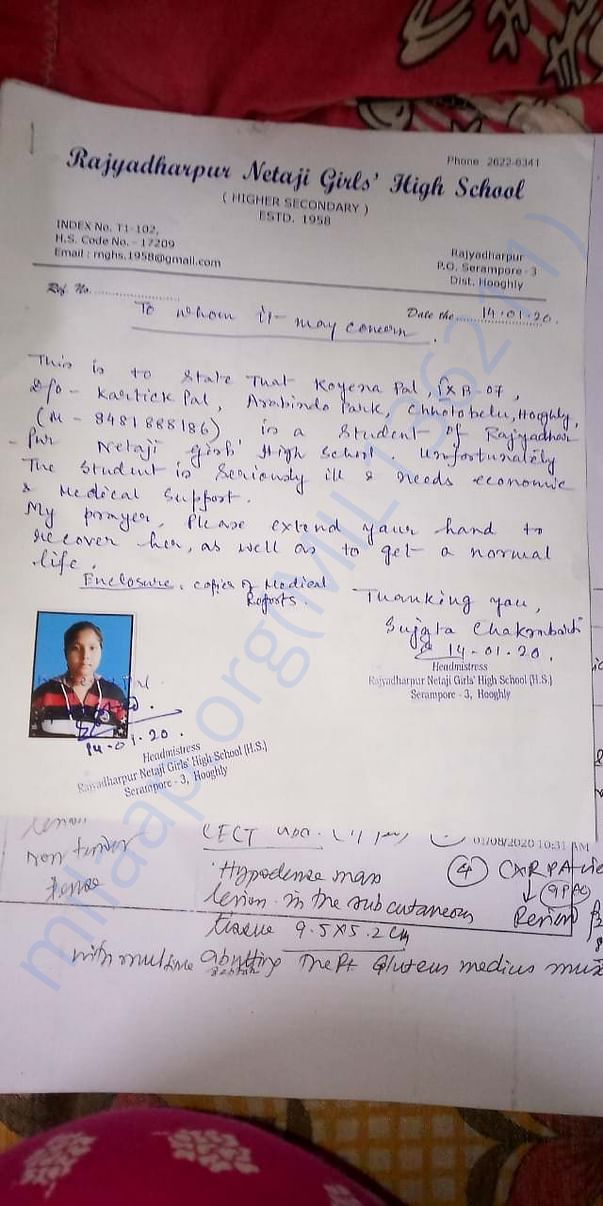 Phone 2622-6341
Rajyadharpur Netaji Girls' High School
( HIGHER SECONDARY )
ESTD. 1958
INDEX No. T1-102,
H.S. Code No. - 17209
Email : rnghs.1958@gmail.com
Rajyadharpur
P.O. Serampore - 3
Dist. Hooghly
Ref. No.
Date the 14.01.20.
To whom it may concern.
This is to state That Koyena Pal, IX B-07,
D/o - Kartick Pal, Arabindo Park, Chhotobelu, Hooghly,
(M - 8481888186) is a student of Rajyadhar
- pur Netaji girls' High School. Unfortunately
The student is seriously ill & needs economic
& Medical Support.
My prayer, Please extend your hand to
recover her, as well as to get a normal
life.
Enclosure. copies of Medical
Reports.
Thanking you,
Sujata Chakraborti
14-01-20.
Headmistress
Rajyadharpur Netaji Girls' High School (H.S.)
Serampore - 3, Hooghly
14-01-20.
Headmistress
Rajyadharpur Netaji Girls' High School (H.S.)
Serampore - 3, Hooghly
milaap.org(MIL1362211)
01/08/2020 10:31 AM
CECT
Non tender
④ CXRPA view
Hypodense mass
lesion in the subcutaneous
Review
tissue 9.5X5.2 cm
abutting The Rt Gluteus medius